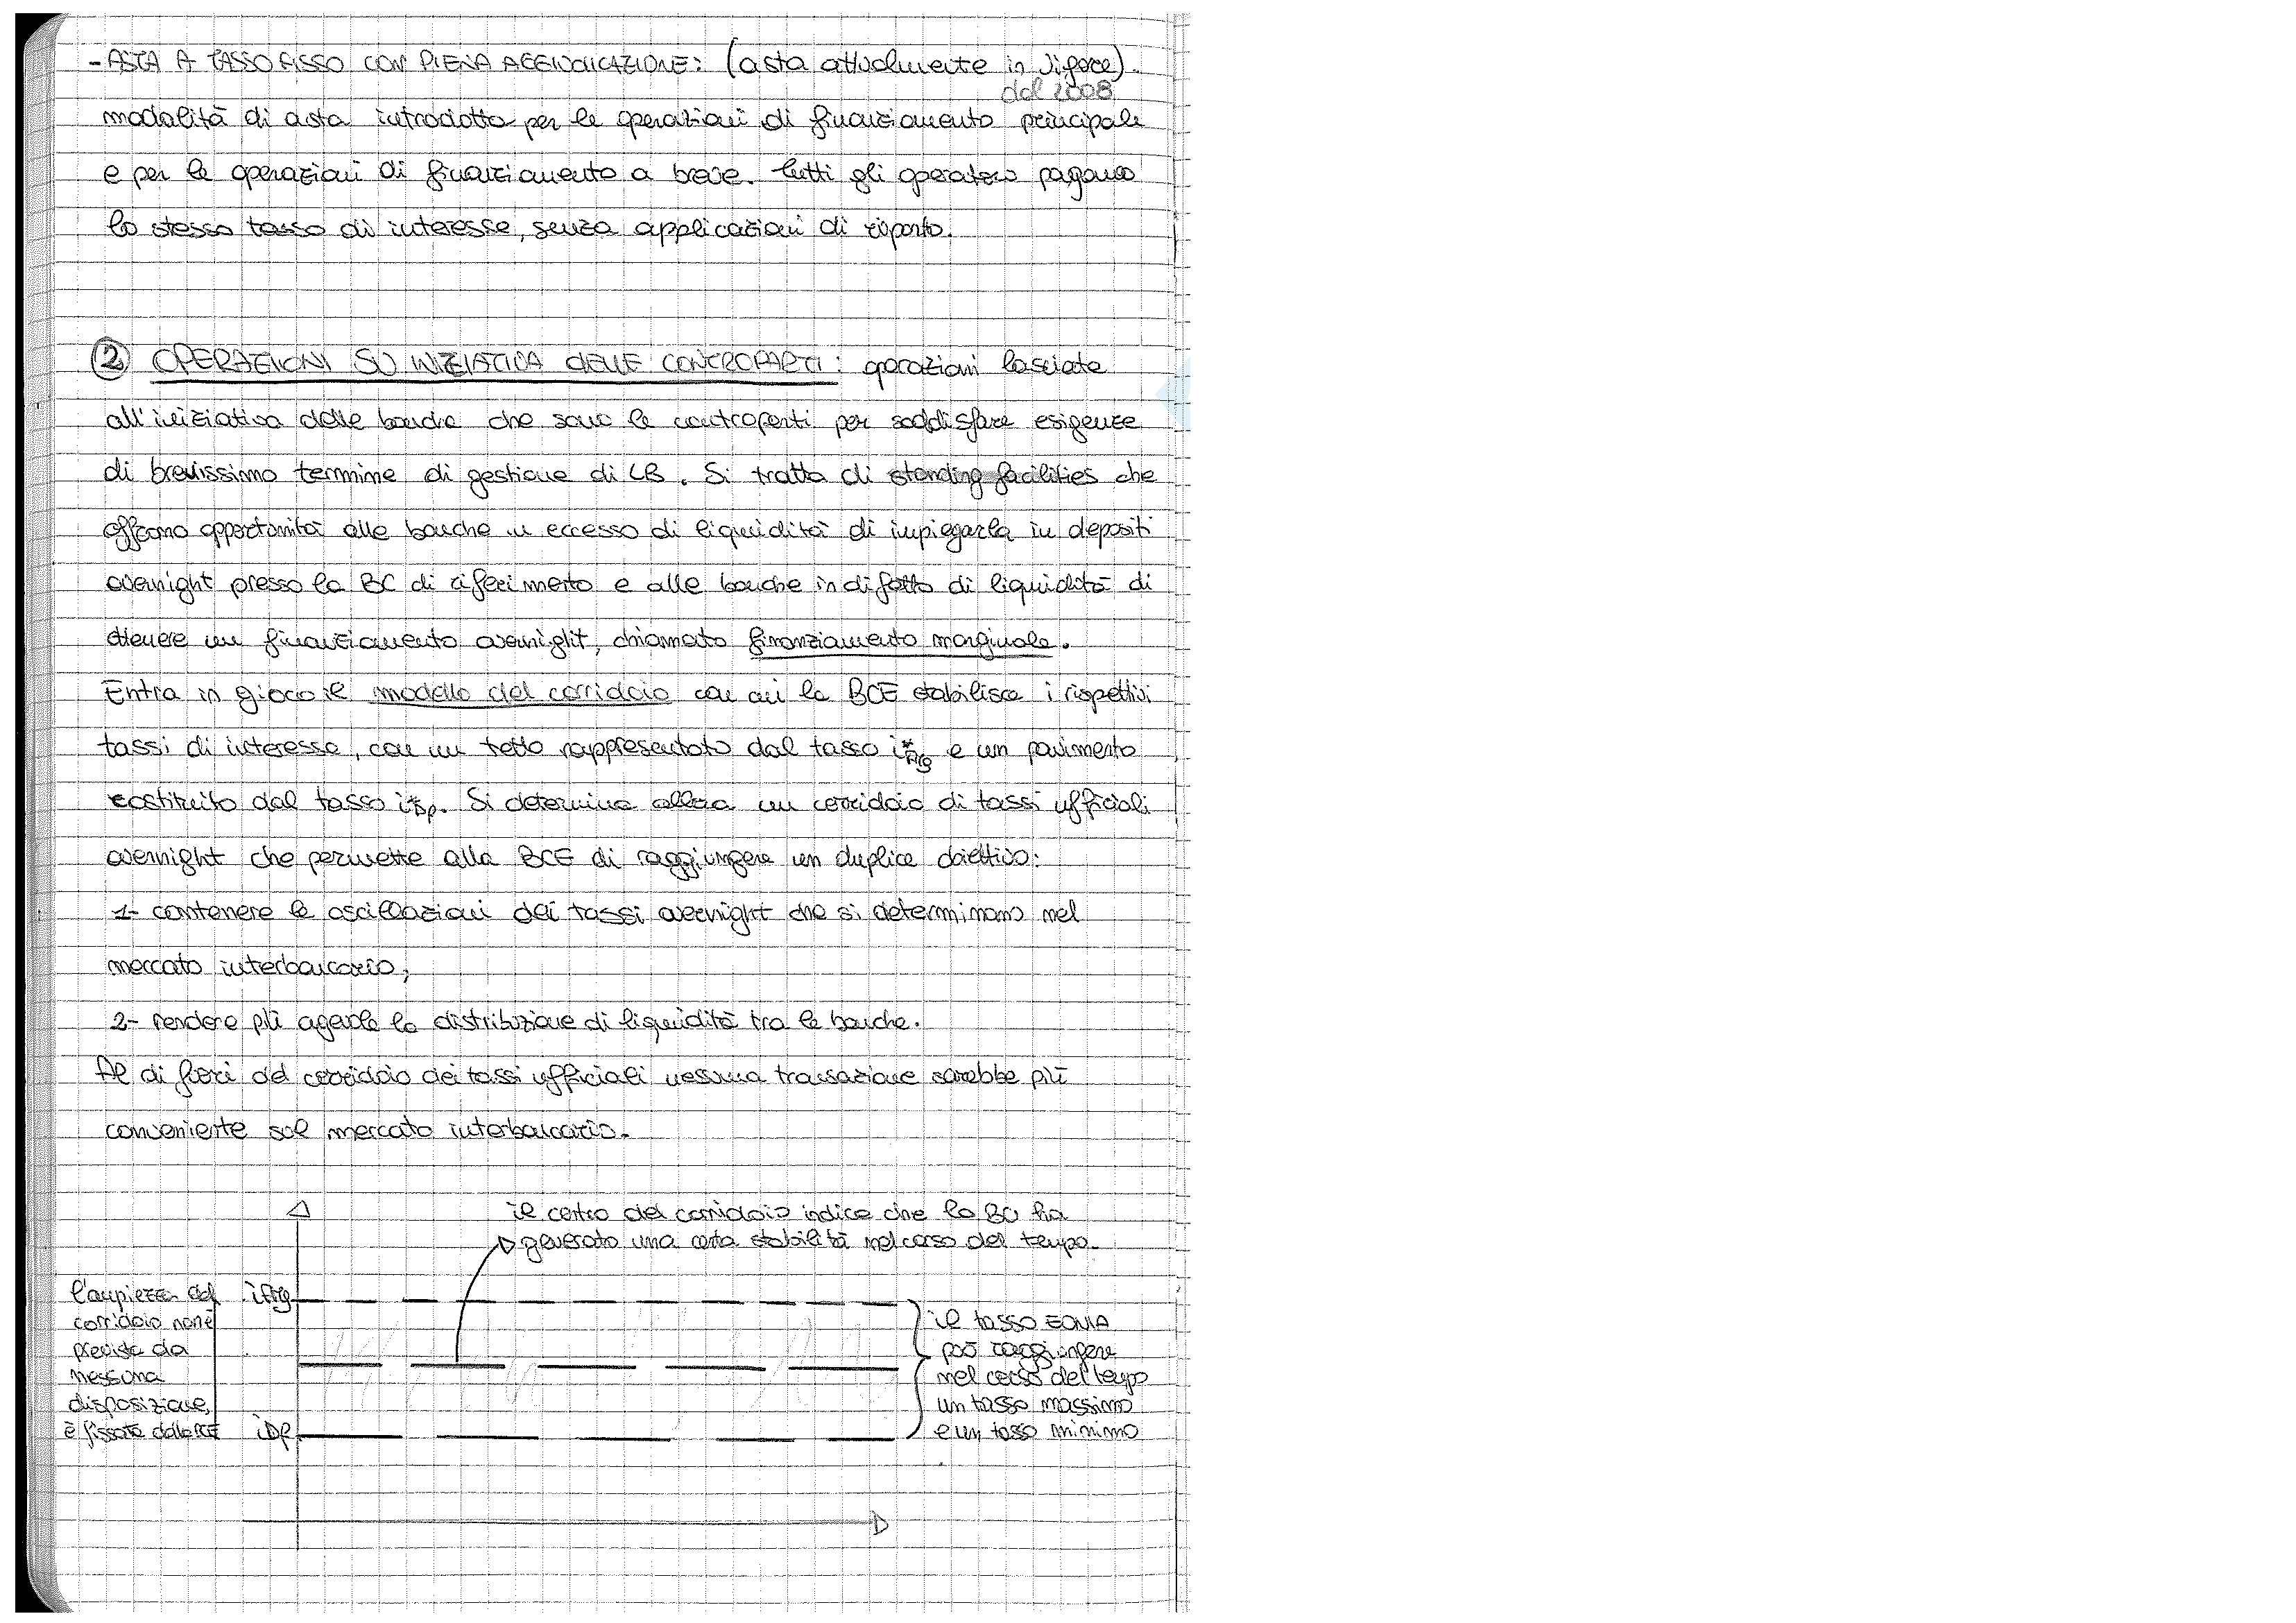 - ASTA A TASSO FISSO CON PIENA AGGIUDICAZIONE: (asta attualmente in vigore).
dal 2008
modalità di asta introdotta per le operazioni di finanziamento principale
e per le operazioni di finanziamento a breve. Tutti gli operatori pagano
lo stesso tasso di interesse, senza applicazioni di riparto.
② OPERAZIONI SU INIZIATIVA DELLE CONTROPARTI: operazioni lasciate
all'iniziativa delle banche che sono le controparti per soddisfare esigenze
di brevissimo termine di gestione di LB. Si tratta di standing facilities che
offrono opportunità alle banche in eccesso di liquidità di impiegarla in depositi
overnight presso la BC di riferimento e alle banche in difetto di liquidità di
ottenere un finanziamento overnight, chiamato finanziamento marginale.
Entra in gioco il modello del corridoio con cui la BCE stabilisce i rispettivi
tassi di interesse, con un tetto rappresentato dal tasso i*Mrg e un pavimento
costituito dal tasso i*Dp. Si determina allora un corridoio di tassi ufficiali
overnight che permette alla BCE di raggiungere un duplice obiettivo:
1- contenere le oscillazioni dei tassi overnight che si determinano nel
mercato interbancario;
2- rendere più agevole la distribuzione di liquidità tra le banche.
Al di fuori del corridoio dei tassi ufficiali nessuna transazione sarebbe più
conveniente sul mercato interbancario.
il centro del corridoio indica che la BC ha
generato una certa stabilità nel corso del tempo.
l'ampiezza del
corridoio non è
prevista da
nessuna
disposizione,
è fissata dalla BCE
iMrg
iDp
il tasso EONIA
può raggiungere
nel corso del tempo
un tasso massimo
e un tasso minimo